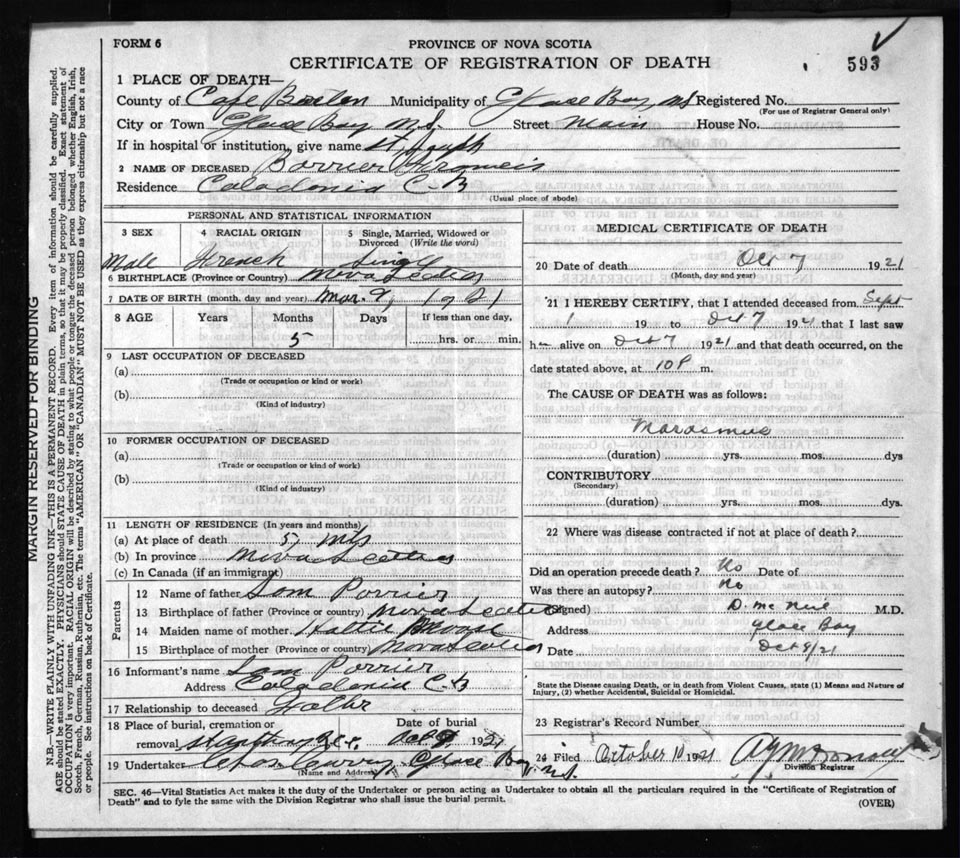 FORM 6
PROVINCE OF NOVA SCOTIA
CERTIFICATE OF REGISTRATION OF DEATH
593
1 PLACE OF DEATH—
County of Cape Breton Municipality of Glace Bay, N.S. Registered No.
(For use of Registrar General only)
City or Town Glace Bay N.S. Street Main House No.
If in hospital or institution, give name St. Joseph
2 NAME OF DECEASED
Residence Caladonia C-B
(Usual place of abode)
PERSONAL AND STATISTICAL INFORMATION
3 SEX 4 RACIAL ORIGIN 5 Single, Married, Widowed or Divorced (Write the word)
Male French Single
6 BIRTHPLACE (Province or Country) Nova Scotia
7 DATE OF BIRTH (month, day and year) Mar. 9, 1921
8 AGE Years Months Days If less than one day,
5 hrs. or min.
9 LAST OCCUPATION OF DECEASED
(a)
(Trade or occupation or kind or work)
(b)
(Kind of industry)
10 FORMER OCCUPATION OF DECEASED
(a)
(Trade or occupation or kind of work)
(b)
(Kind of industry)
11 LENGTH OF RESIDENCE (In years and months)
(a) At place of death 5
(b) In province Nova Scotia
(c) In Canada (if an immigrant)
Parents
12 Name of father Sam Porrier
13 Birthplace of father (Province or country) Nova Scotia
14 Maiden name of mother Hattie
15 Birthplace of mother (Province or country) Nova Scotia
16 Informant's name Sam Porrier
Address Caladonia C-B
17 Relationship to deceased Father
18 Place of burial, cremation or removal St Anthony Date of burial Oct 9 1921
19 Undertaker Chas Curry, Glace Bay N.S.
(Name and Address)
MEDICAL CERTIFICATE OF DEATH
20 Date of death Oct 7 1921
(Month, day and year)
21 I HEREBY CERTIFY, that I attended deceased from Sept
1 19 to Oct 7 1921 that I last saw
h alive on Oct 7 1921 and that death occurred, on the
date stated above, at 10 P m.
The CAUSE OF DEATH was as follows:
Marasmus
(duration) yrs. mos. dys
CONTRIBUTORY
(Secondary)
(duration) yrs. mos. dys.
22 Where was disease contracted if not at place of death?
Did an operation precede death? No Date of
Was there an autopsy? No
(Signed) D. Mc Neil M.D.
Address Glace Bay
Date Oct 8/21
State the Disease causing Death, or in death from Violent Causes, state (1) Means and Nature of
Injury, (2) whether Accidental, Suicidal or Homicidal.
23 Registrar's Record Number
24 Filed October 10 1921
Division Registrar
SEC. 46—Vital Statistics Act makes it the duty of the Undertaker or person acting as Undertaker to obtain all the particulars required in the "Certificate of Registration of
Death" and to fyle the same with the Division Registrar who shall issue the burial permit.
(OVER)
MARGIN RESERVED FOR BINDING
N.B.—WRITE PLAINLY WITH UNFADING INK—THIS IS A PERMANENT RECORD. Every item of information should be carefully supplied.
AGE should be stated EXACTLY. PHYSICIANS should STATE CAUSE OF DEATH in plain terms, so that it may be properly classified. Exact statement of
OCCUPATION is very important. RACIAL ORIGIN will be described by stating to what people or tongue the deceased person belonged whether English, Irish,
Scotch, French, German, Russian, Ruthenian, etc. The terms "AMERICAN" OR "CANADIAN" MUST NOT BE USED as they express citizenship but not a race
or people. See instructions on back of Certificate.